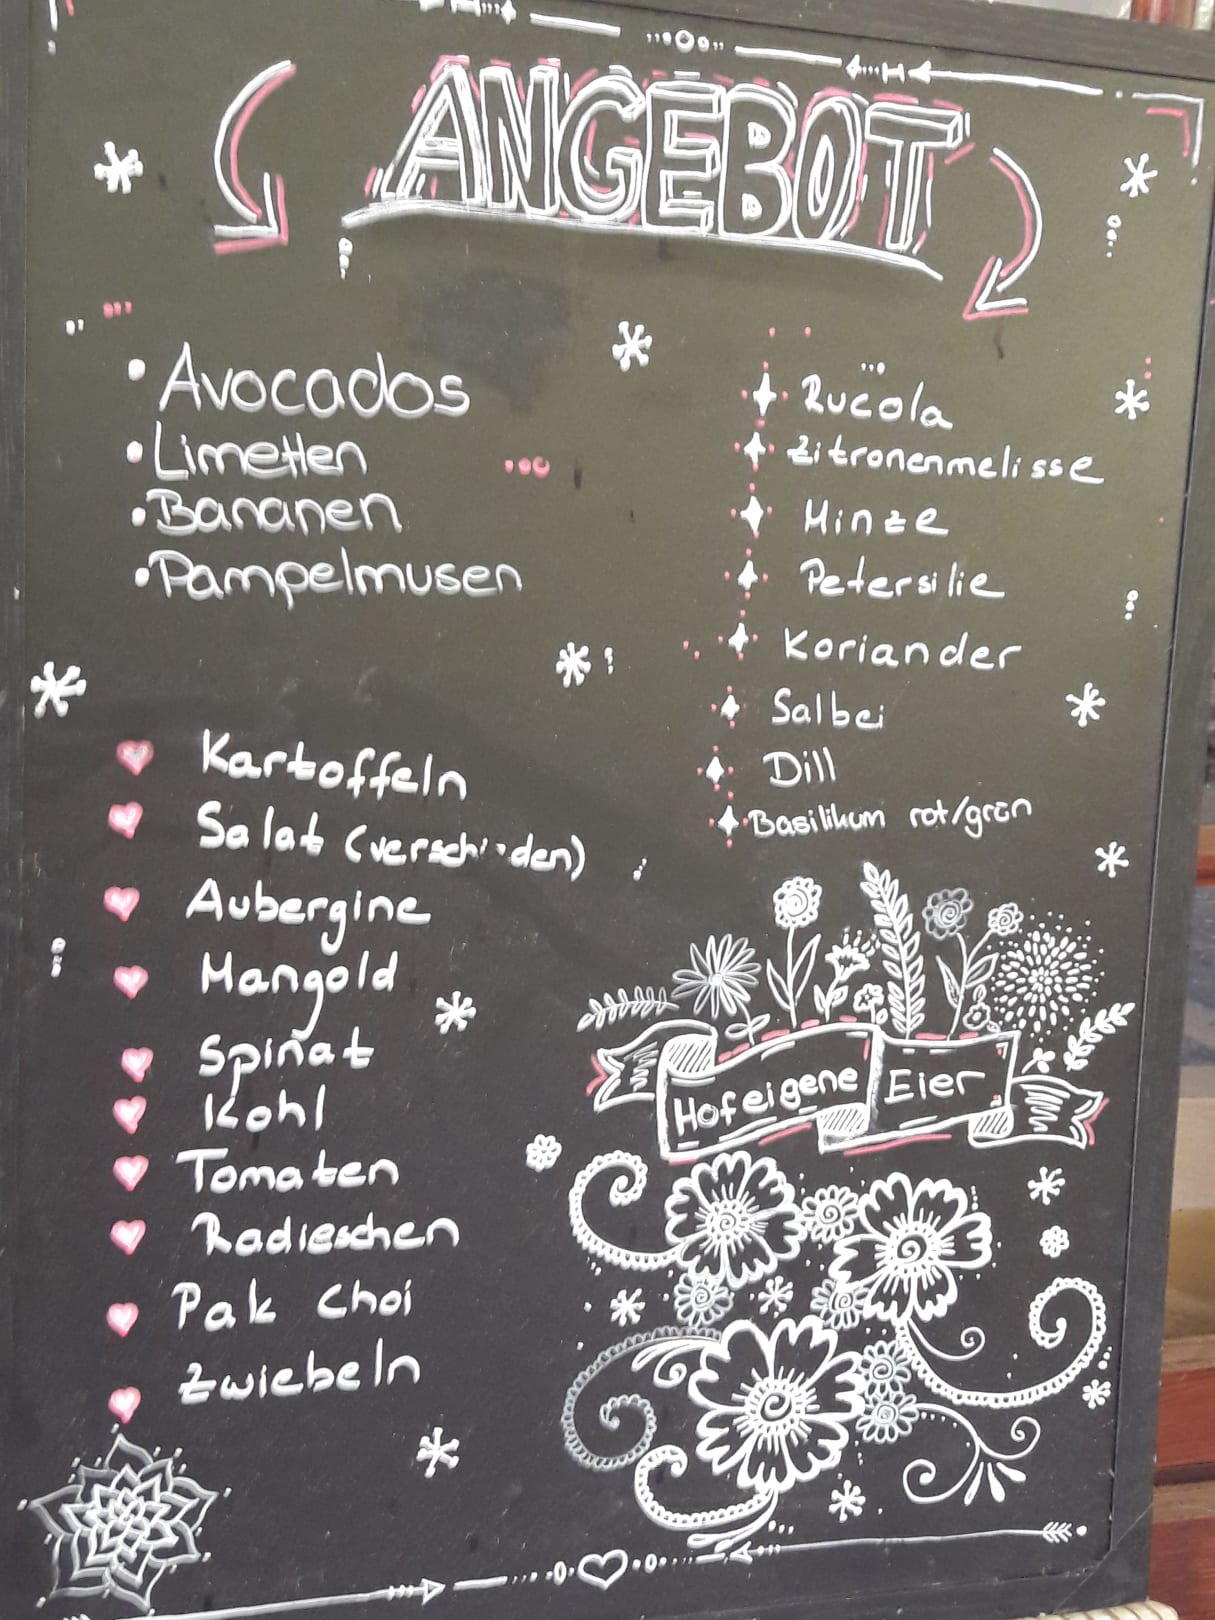 ANGEBOT
Avocados
Limetten
Bananen
Pampelmusen
Kartoffeln
Salat (verschieden)
Aubergine
Mangold
Spinat
Kohl
Tomaten
Radieschen
Pak Choi
Zwiebeln
Rucola
Zitronenmelisse
Minze
Petersilie
Koriander
Salbei
Dill
Basilikum rot/grün
Hofeigene Eier